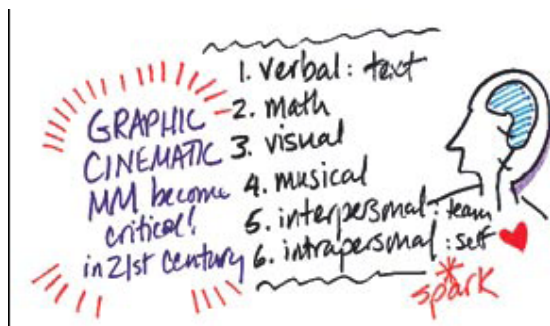 GRAPHIC
CINEMATIC
MM become
critical!
in 21st century
1. verbal: text
2. math
3. visual
4. musical
5. interpersonal: team
6. intrapersonal: self
spark